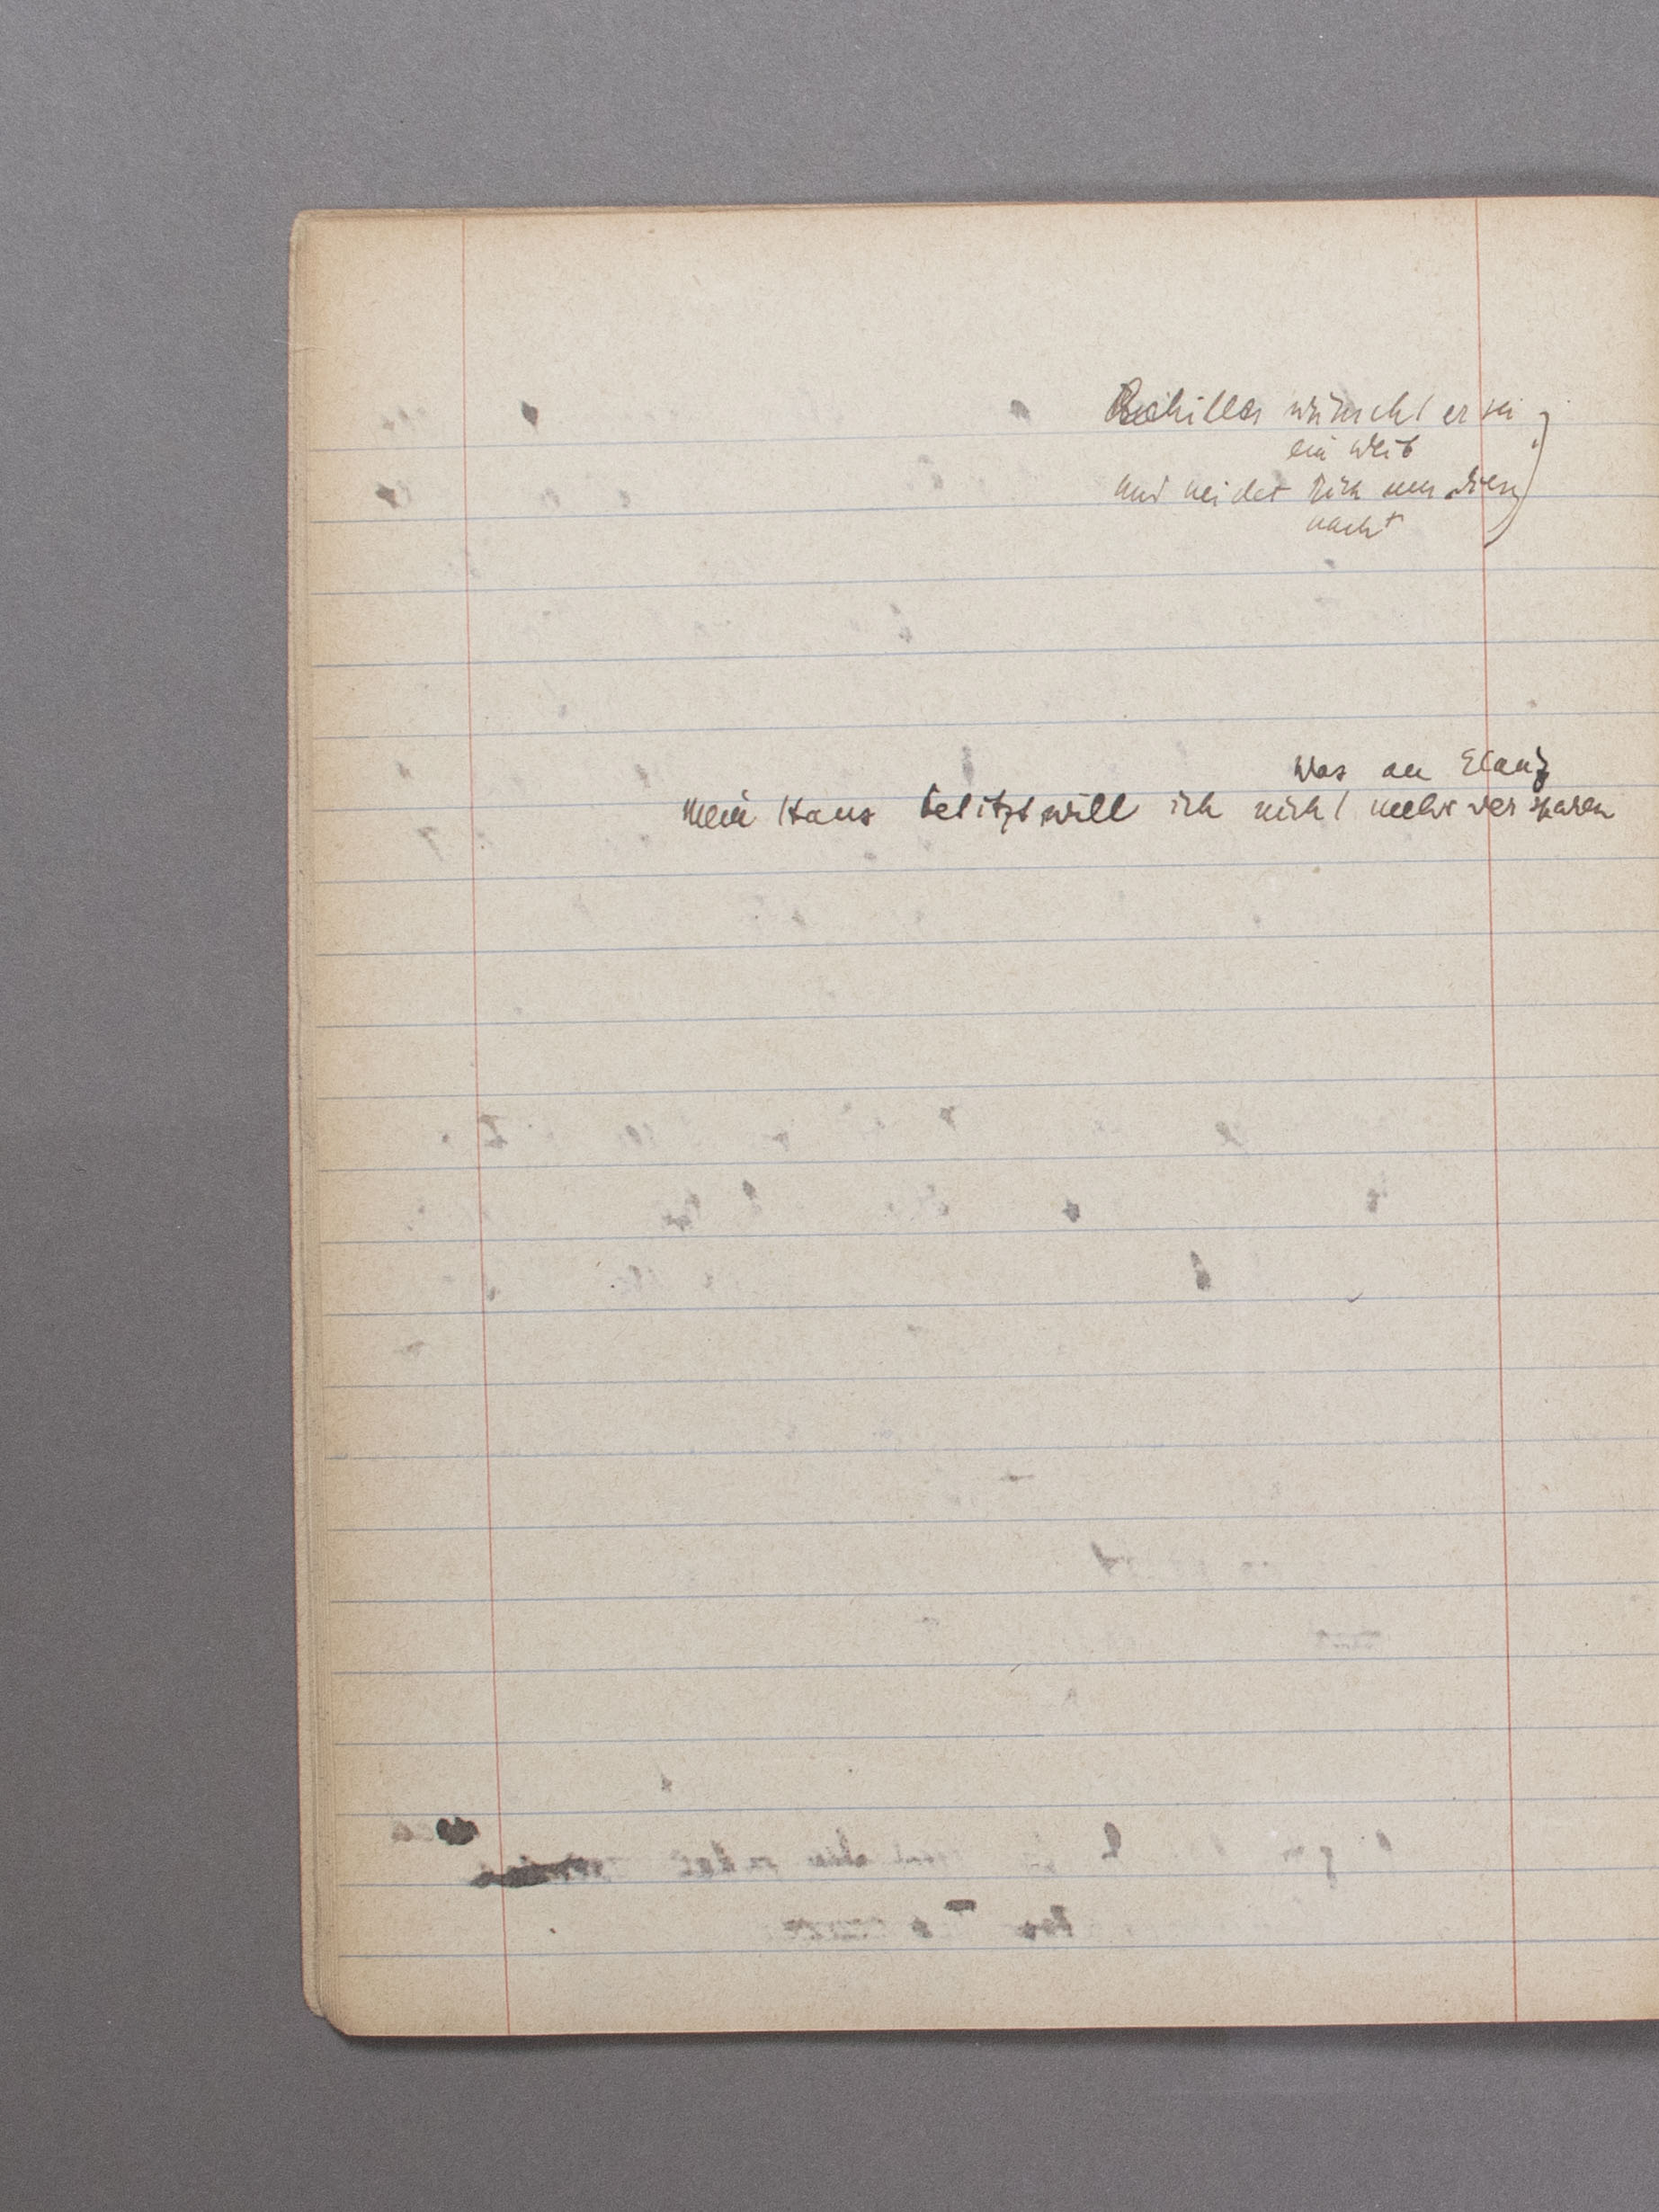 Achilles wünscht er sei
ein Weib
und neidet dich um diese
nacht
Was an Glanz
Mein Haus besitzt will ich nicht mehr versparen